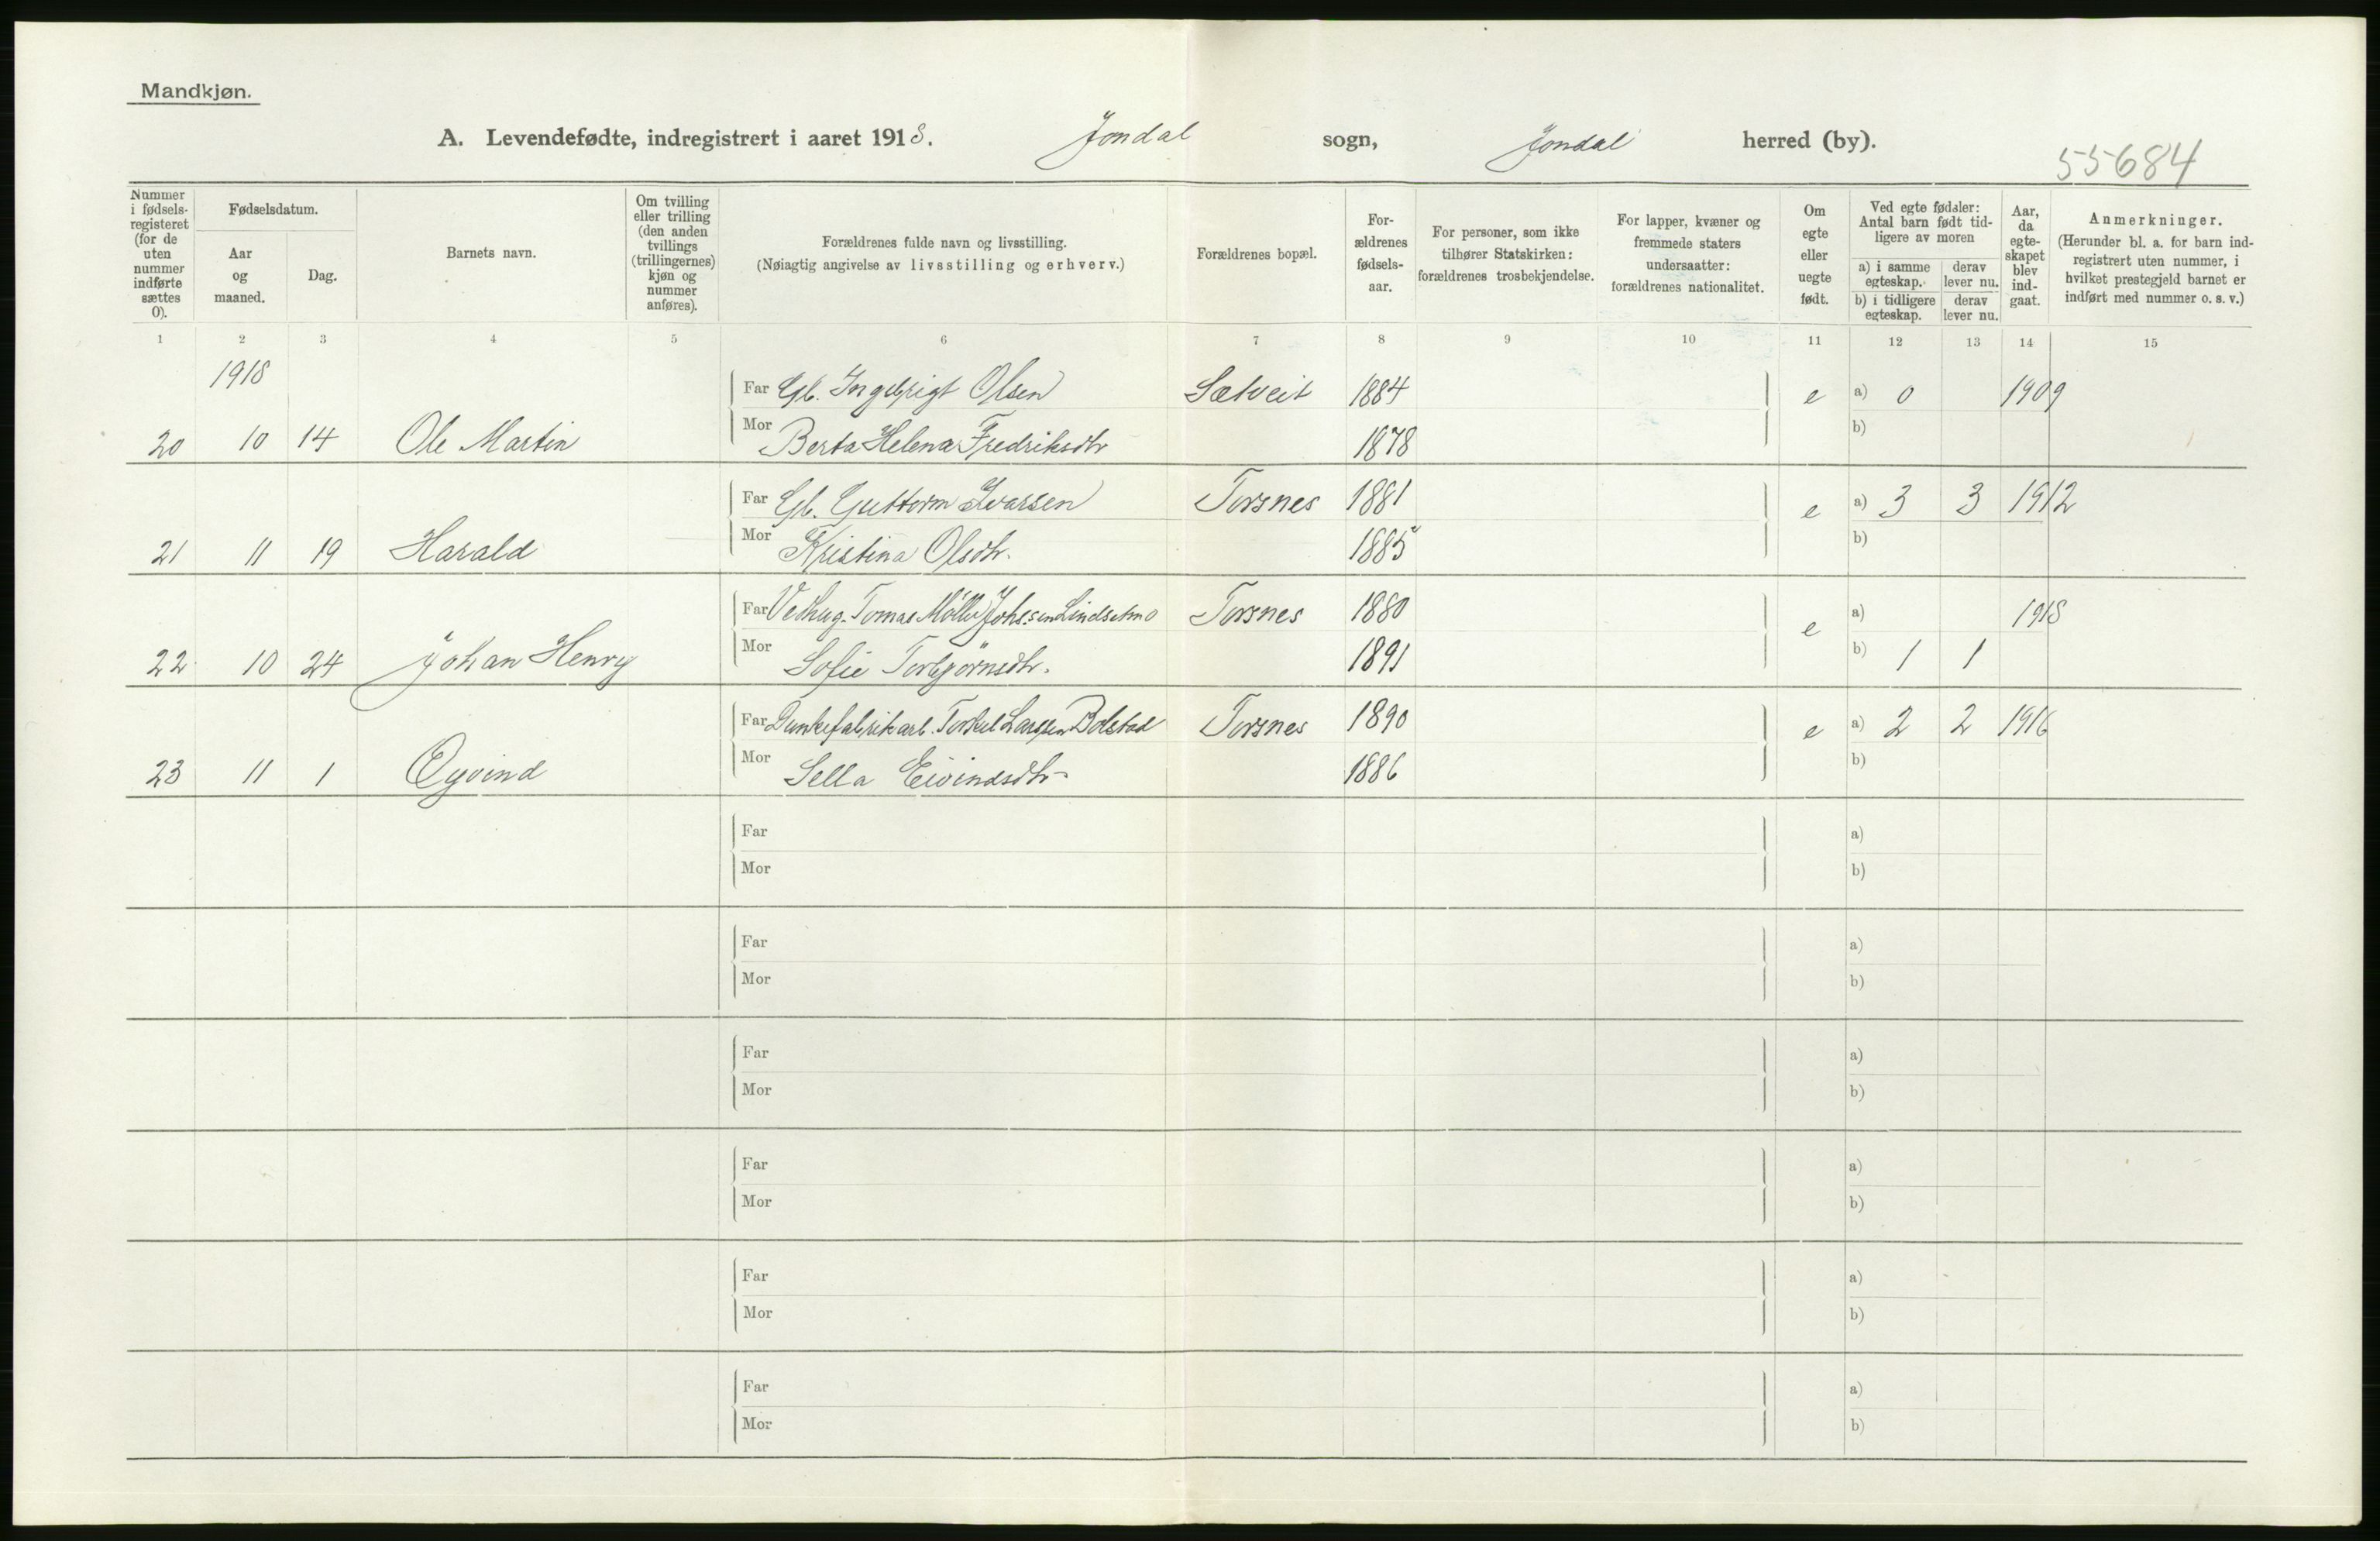 Mandkjøn.
A. Levendefødte, indregistrert i aaret 1918. Jondal sogn, Jondal herred (by).
55684
Nummer i fødsels-registeret (for de uten nummer indførte sættes 0).
Fødselsdatum.
Aar og maaned.
Dag.
Barnets navn.
Om tvilling eller trilling (den anden tvillings (trillingernes) kjøn og nummer anføres).
Forældrenes fulde navn og livsstilling.
(Nøiagtig angivelse av livsstilling og erhverv.)
Forældrenes bopæl.
For-ældrenes fødsels-aar.
For personer, som ikke tilhører Statskirken: forældrenes trosbekjendelse.
For lapper, kvæner og fremmede staters undersaatter: forældrenes nationalitet.
Om egte eller uegte født.
Ved egte fødsler: Antal barn født tid-ligere av moren
a) i samme egteskap.
derav lever nu.
b) i tidligere egteskap.
derav lever nu.
Aar, da egte-skapet blev ind-gaat.
Anmerkninger.
(Herunder bl. a. for barn ind-registrert uten nummer, i hvilket prestegjeld barnet er indført med nummer o. s. v.)
1 2 3 4 5 6 7 8 9 10 11 12 13 14 15
1918
Far Gb. Ingebrigt Olsen Sætveit 1884 e a) 0 1909
20 10 14 Ole Martin Mor Berta Helena Fredriksdtr 1878 b)
Far Gb. Guttorm Ivarsen Torsnes 1881 e a) 3 3 1912
21 11 19 Harald Mor Kristina Olsdtr. 1885 b)
Far Tomas Møller Johs.sen Lindsetmo Torsnes 1880 e a) 1918
22 10 24 Johan Henry Mor Sofie Torbjörnsdtr. 1891 b) 1 1
Far Larssen Bolstad Torsnes 1890 e a) 2 2 1916
23 11 1 Øyvind Mor Sella Eivindsdtr 1886 b)
Far a)
Mor b)
Far a)
Mor b)
Far a)
Mor b)
Far a)
Mor b)
Far a)
Mor b)
Far a)
Mor b)